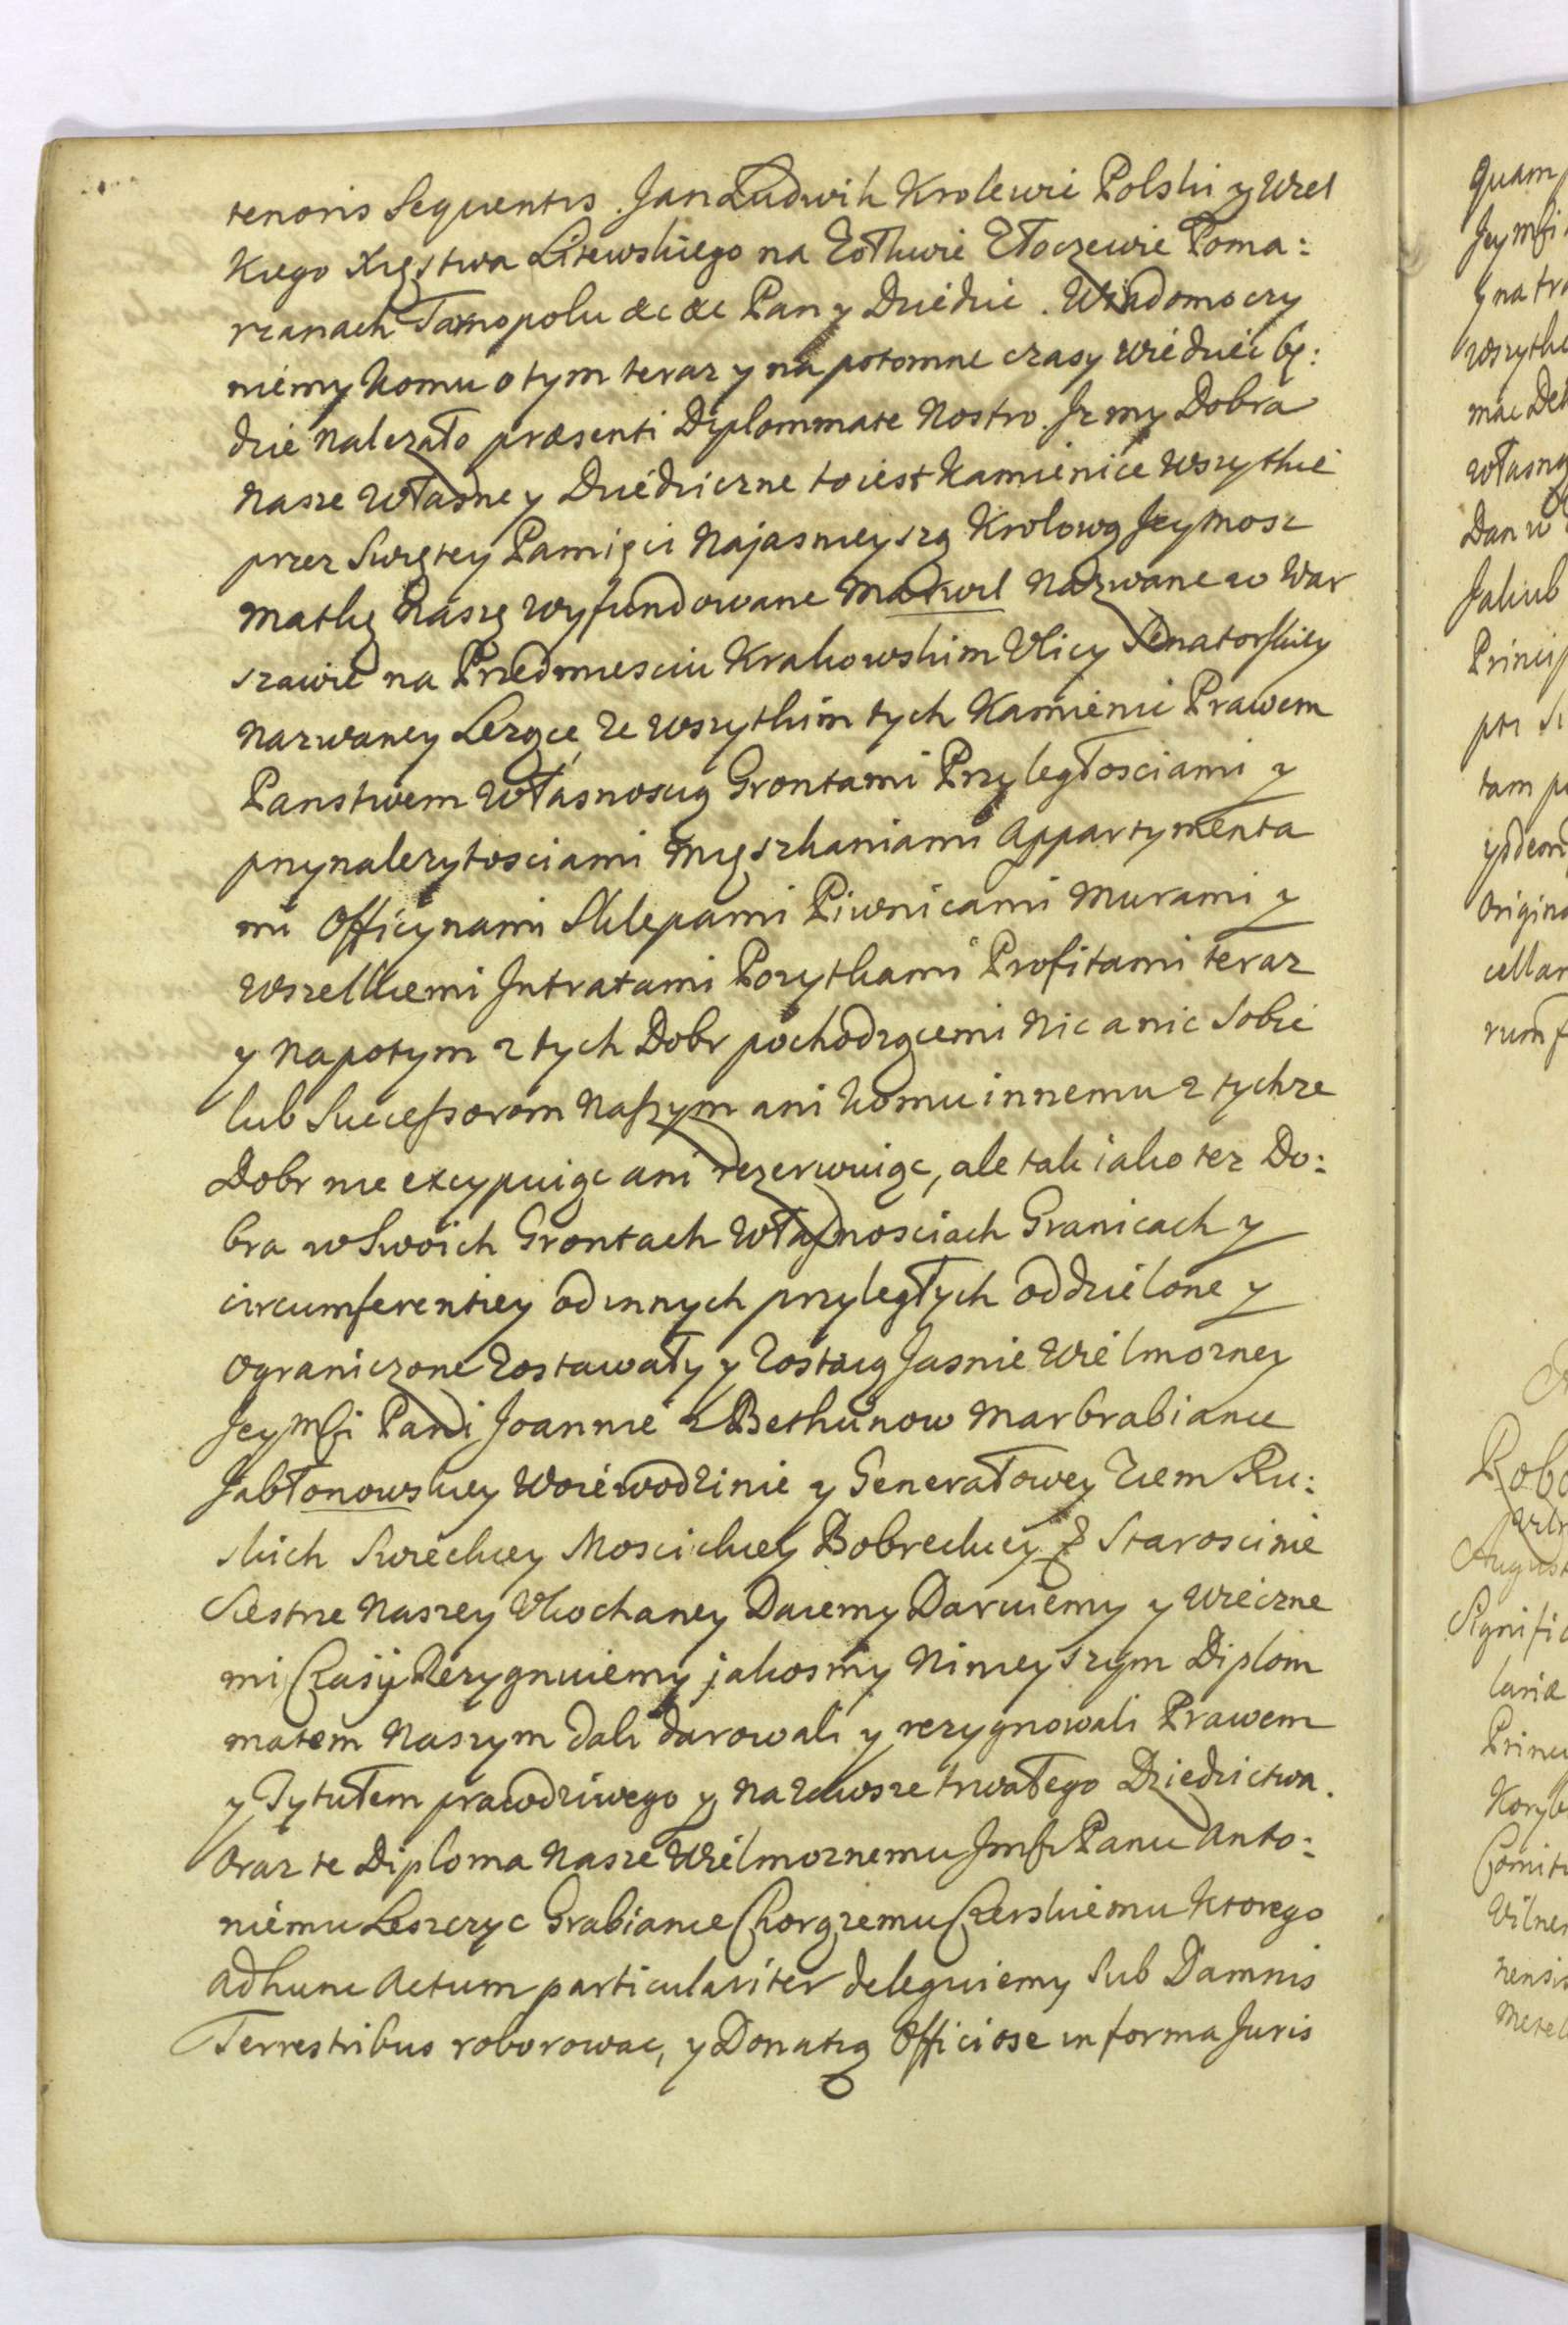 tenoris Sequentis. Jan Ludwik Krolewic Polski y Wiel
kiego Xięstwa Litewskiego na Żołkwie Złoczewie Poma:
rzanach Tarnopolu &c &c Pan y Dziedzic. Wiadomo czy
niemy komu o tym teraz y na potomne czasy wiedzieć bę:
dzie nalezało præsenti Diplommate Nostro. Jz my Dobra
Nasze Własne y Dziedziczne to iest Kamienice Wszytkie
przez Swiętey Pamięci Najasnieyszą Krolową Jeymosc
Matkę Naszę wyfundowane Marwil Nazwane w War
szawie na Przedmiesciu Krakowskim Vlicy Senatorskiey
Nazwaney Lezące, ze wszytkim tych Kamienic Prawem
Panstwem Własnoscią Grontami Przyległosciami y
przynalezytosciami Mięszkaniami Appartymenta
mi Officynami Sklepami Piwnicami Murami y
Wszelkiemi Jntratami Pozytkami Profitami teraz
y napotym z tych Dobr pochodzącemi Nic a nic Sobie
lub Successorom Naszym ani komu innemu z tychze
Dobr nie excypuiąc ani rezerwuiąc, ale tak iako tez Do:
bra w Swoich Grontach Własnosciach Granicach y
circumferentiey od innych przyległych oddzielone y
ograniczone Zostawały y Zostaią Jasnie Wielmozney
Jeymści Pani Joannie z Bethunow Margrabiance
Jabłonowskiey Woiewodzinie y Generałowey Ziem Ru:
skich Swieckiey Mosciskiey Bobreckiey & Starościnie
Siestrze Naszey Vkochaney Daiemy Daruiemy y Wieczne
mi Czasy Rezygnuiemy jakosmy Ninieyszym Diplom
matem Naszym dali darowali y rezygnowali Prawem
y Tytułem prawdziwego y na zawsze trwałego Dziedzictwa.
Oraz te Diploma Nasze Wielmoznemu Jmści Panu Anto:
niemu Leszczyc Grabiance Chorązemu Czerskiemu Ktorego
ad hunc Actum particulariter deleguiemy Sub Damnis
Terrestribus roborowac, y Donatią Officiose in forma Juris
quam
Jeymści
y na
wszytk
własną
Dan w
Jakub
Princip
tam
Origina
cellar
rum
August
Signific
lariæ
Princi
Koryb
Comit
Vilne
nensis